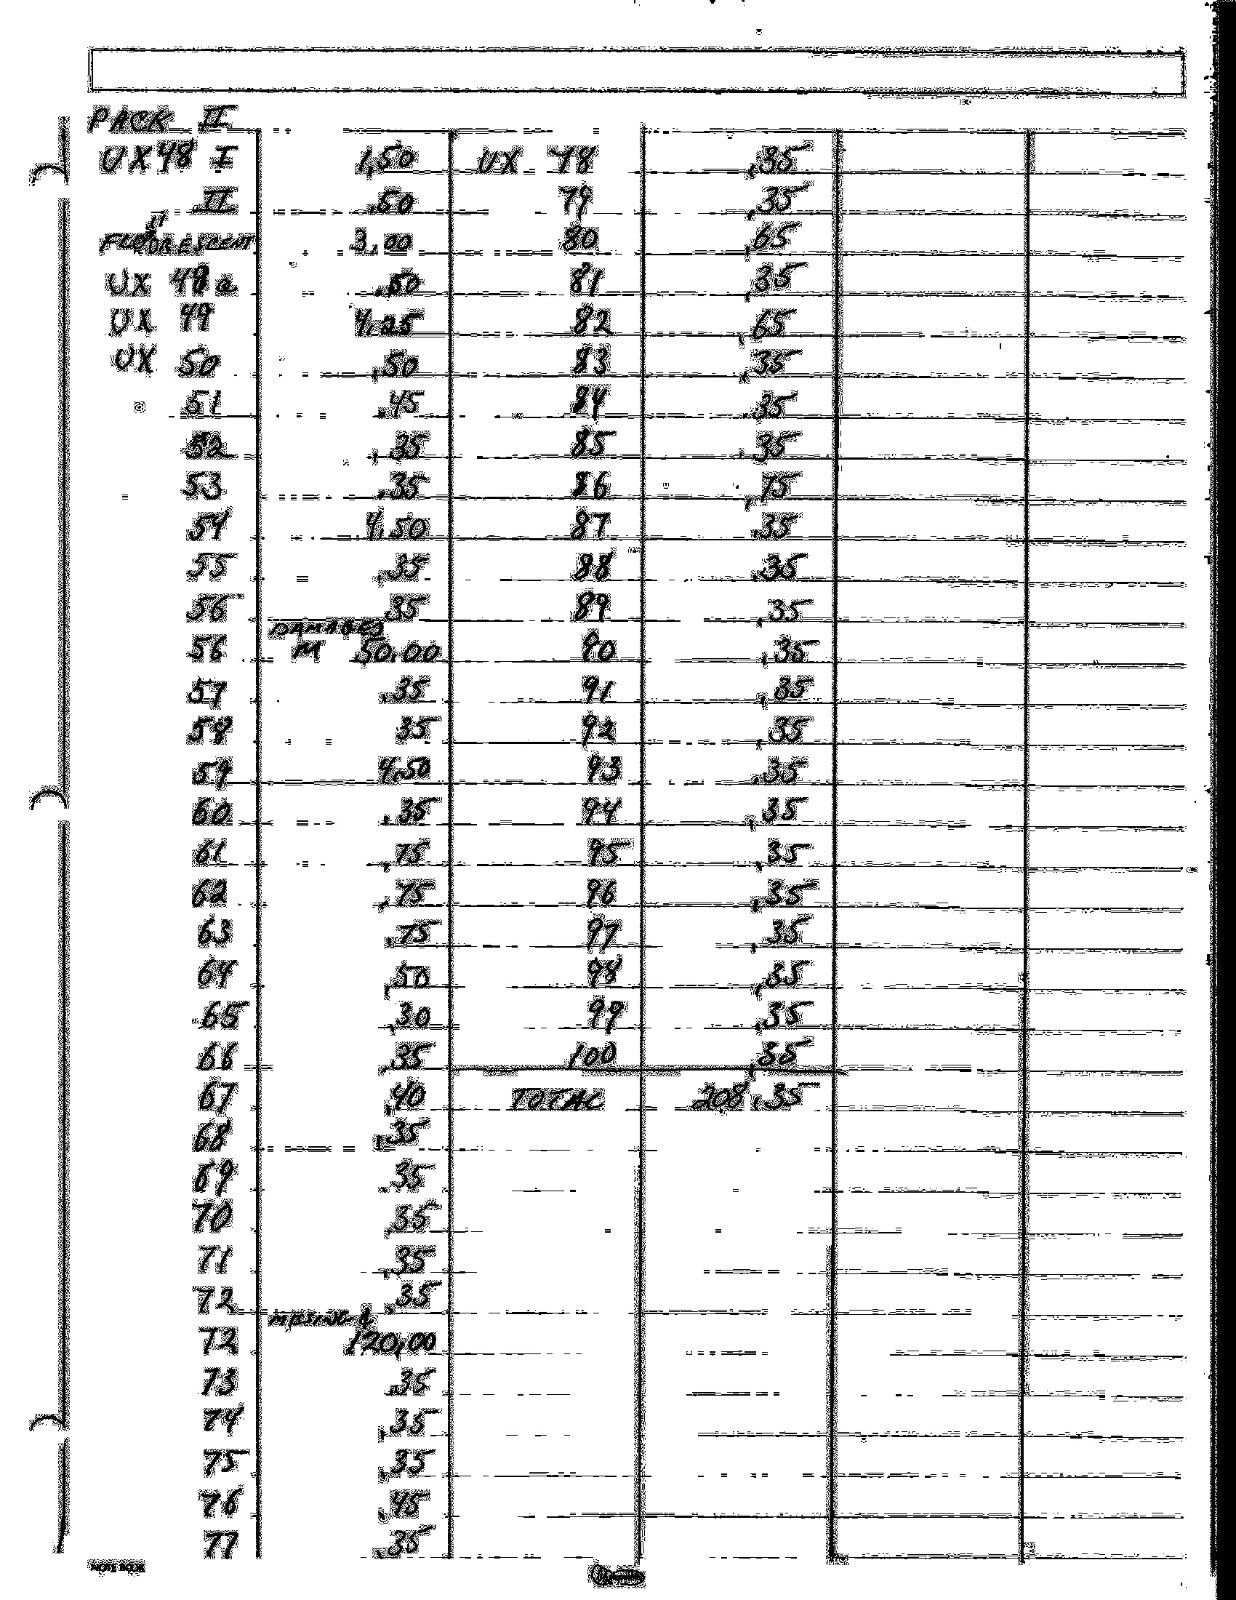 PACK II
UX48 I 1.50 UX 78 .35
II .50 79 .35
FLUORESCENT 3.00 80 .65
UX 48a .50 81 .35
UX 49 4.25 82 .65
UX 50 .50 83 .35
51 .45 84 .35
52 .35 85 .35
53 .35 86 .75
54 4.50 87 .35
55 .35 88 .35
56 .35 89 .35
DAMAGED
56 M 50.00 90 .35
57 .35 91 .35
58 35 92 .35
59 4.50 93 .35
60 .35 94 .35
61 .75 95 .35
62 .75 96 .35
63 .75 97 .35
64 .50 98 .35
65 .30 99 .35
66 .35 100 .35
67 .40 TOTAL 208.35
68 .35
69 .35
70 .35
71 .35
72 .35
MISSING
72 120.00
73 .35
74 .35
75 .35
76 .45
77 .35
NOTE BOOK